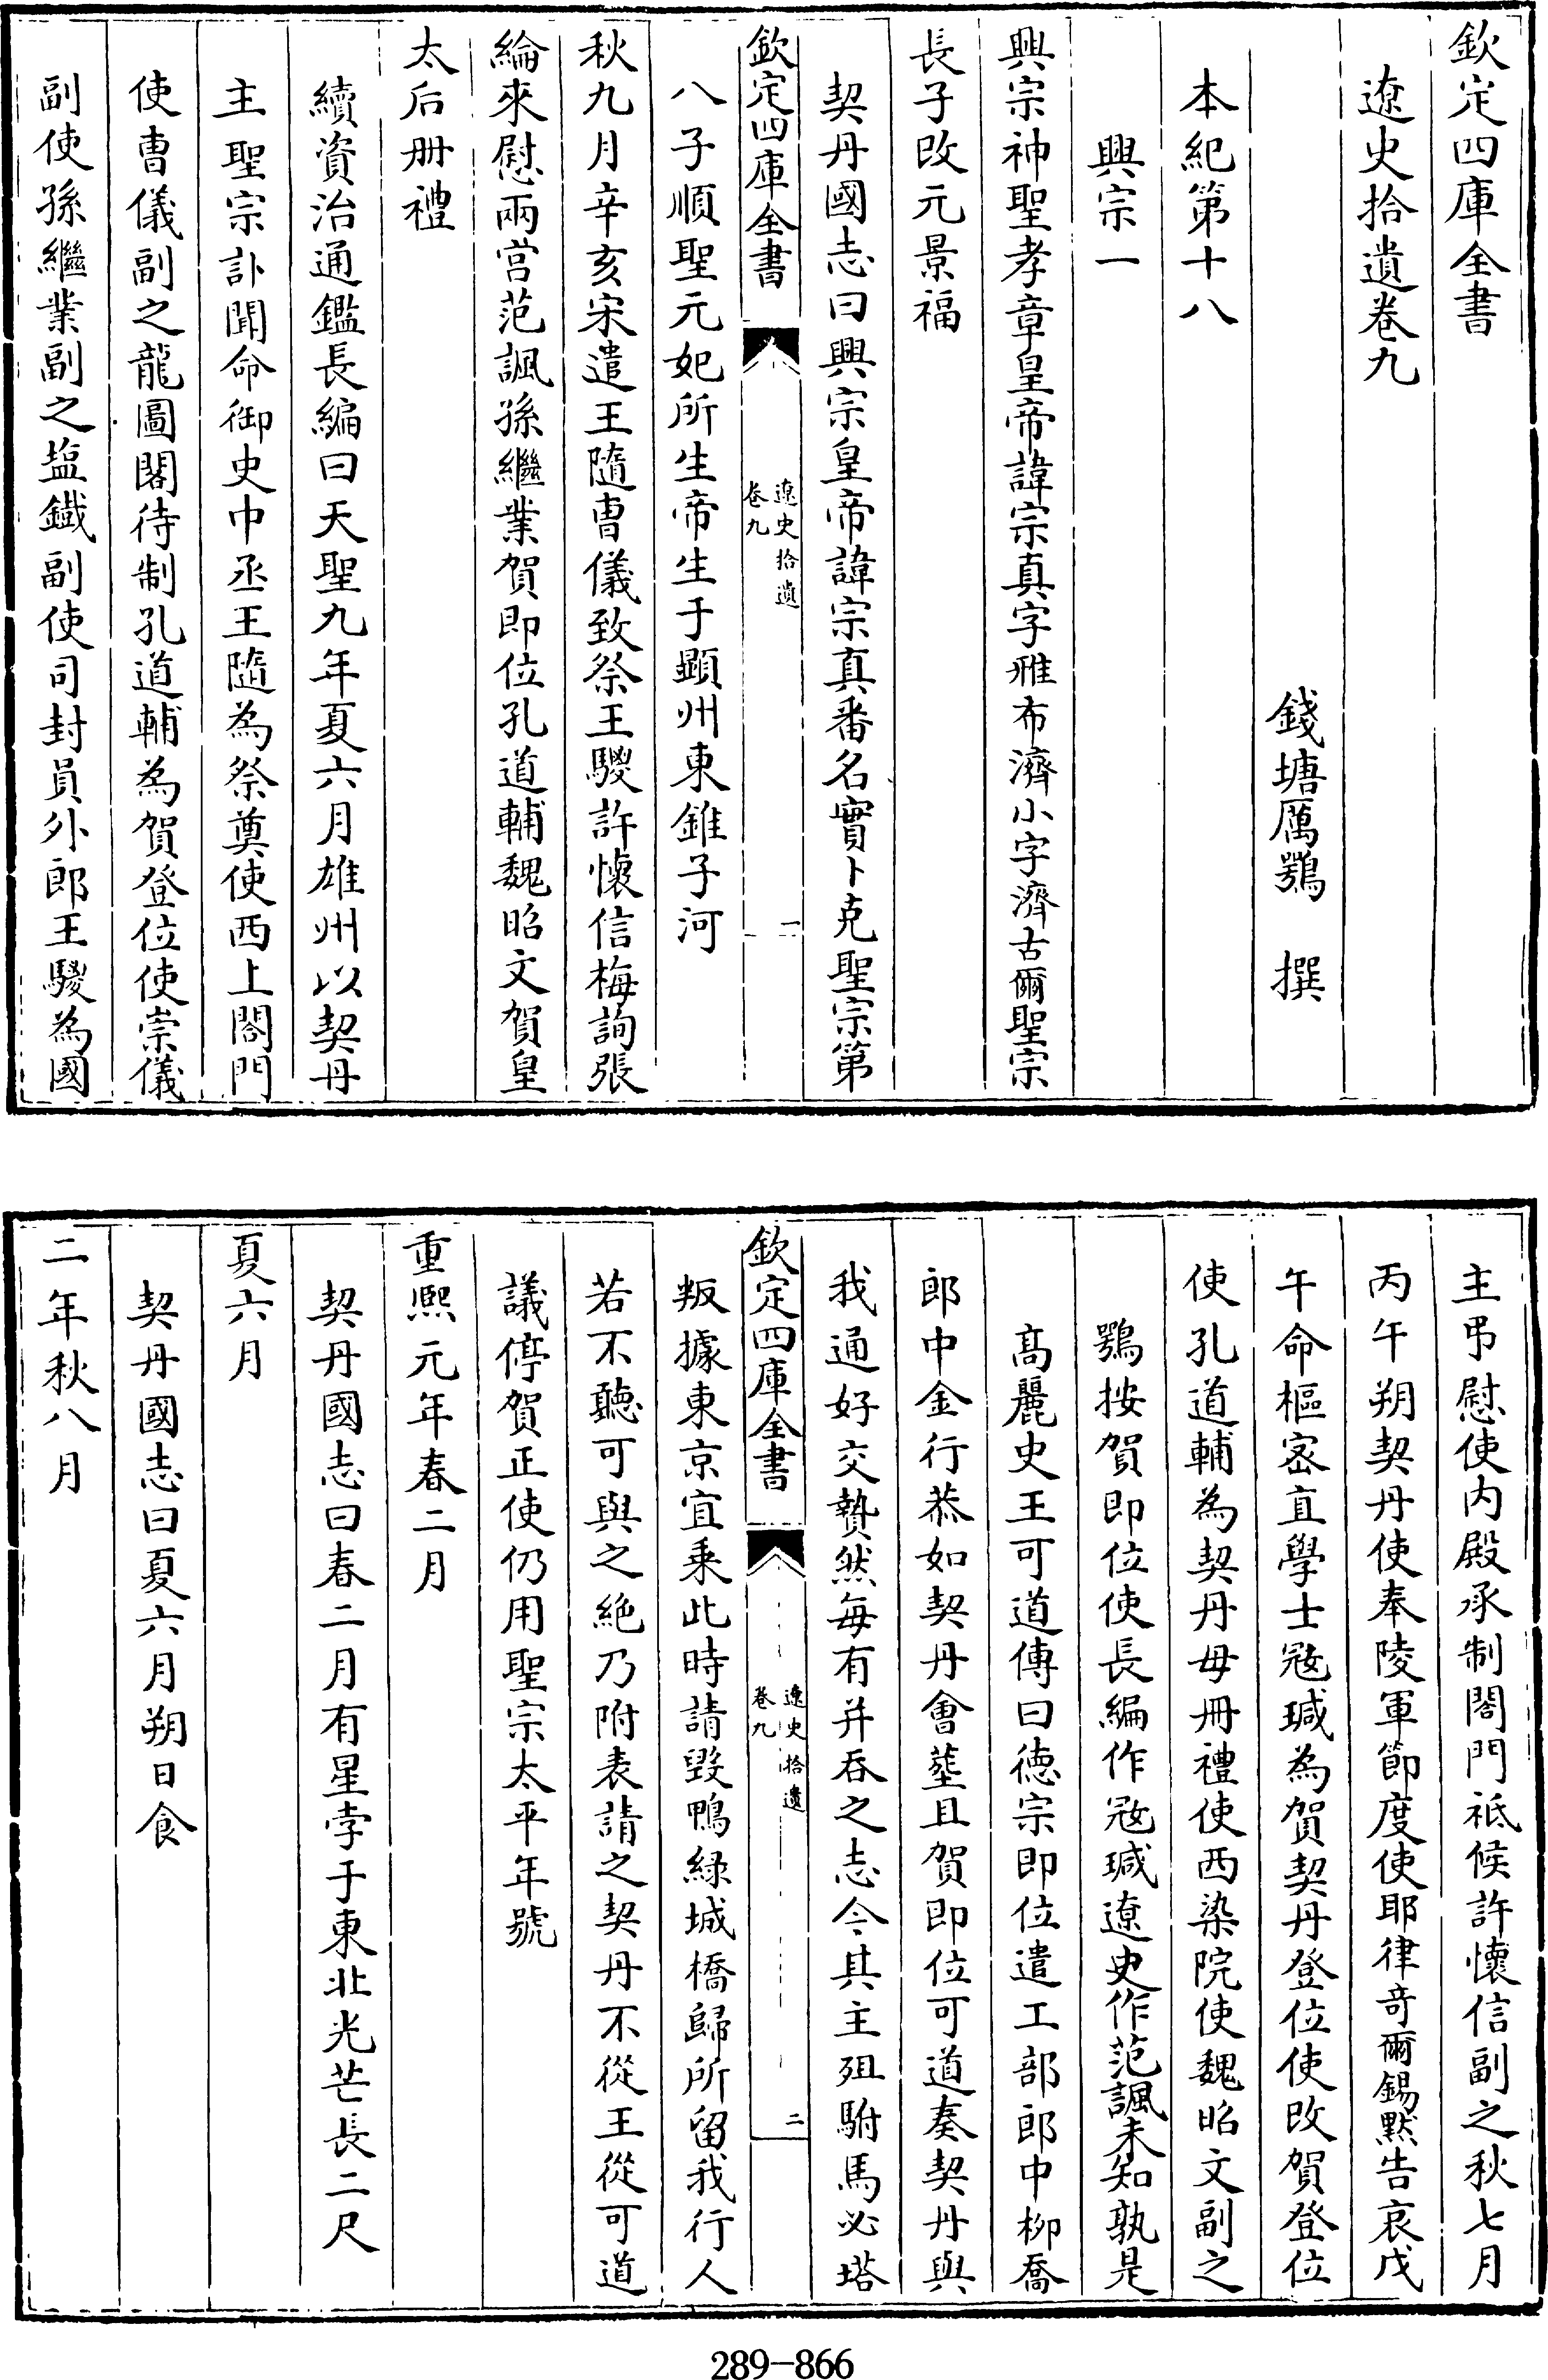 欽定四庫全書
遼史拾遺卷九
錢塘厲鶚　撰
本紀第十八
興宗一
興宗神聖孝章皇帝諱宗真字雅布濟小字濟古爾聖宗
長子改元景福
契丹國志曰興宗皇帝諱宗真番名實卜克聖宗第
欽定四庫全書
遼史拾遺
卷九
一
八子順聖元妃所生帝生于顯州東錐子河
秋九月辛亥宋遣王隨曹儀致祭王騣許懷信梅詢張
綸來慰兩宫范諷孫繼業賀即位孔道輔魏昭文賀皇
太后册禮
續資治通鑑長編曰天聖九年夏六月雄州以契丹
主聖宗訃聞命御史中丞王隨為祭奠使西上閤門
使曹儀副之龍圖閣待制孔道輔為賀登位使崇儀
副使孫繼業副之盐鐵副使司封員外郎王騣為國
主弔慰使内殿承制閤門祗候許懷信副之秋七月
丙午朔契丹使奉陵軍節度使耶律竒爾錫黙告哀戊
午命樞宻直學士宼瑊為賀契丹登位使改賀登位
使孔道輔為契丹毋册禮使西染院使魏昭文副之
鶚按賀即位使長編作宼瑊遼史作范諷未知孰是
髙麗史王可道傳曰徳宗即位遣工部郎中栁喬
郎中金行恭如契丹會塟且賀即位可道奏契丹與
我通好交贄然每有并吞之志今其主殂駙馬必塔
欽定四庫全書
遼史拾遺
卷九
二
叛據東京宜乘此時請毀鴨緑城橋歸所留我行人
若不聽可與之絶乃附表請之契丹不從王從可道
議停賀正使仍用聖宗太平年號
重熙元年春二月
契丹國志曰春二月有星孛于東北光芒長二尺
夏六月
契丹國志曰夏六月朔日食
二年秋八月
289-866